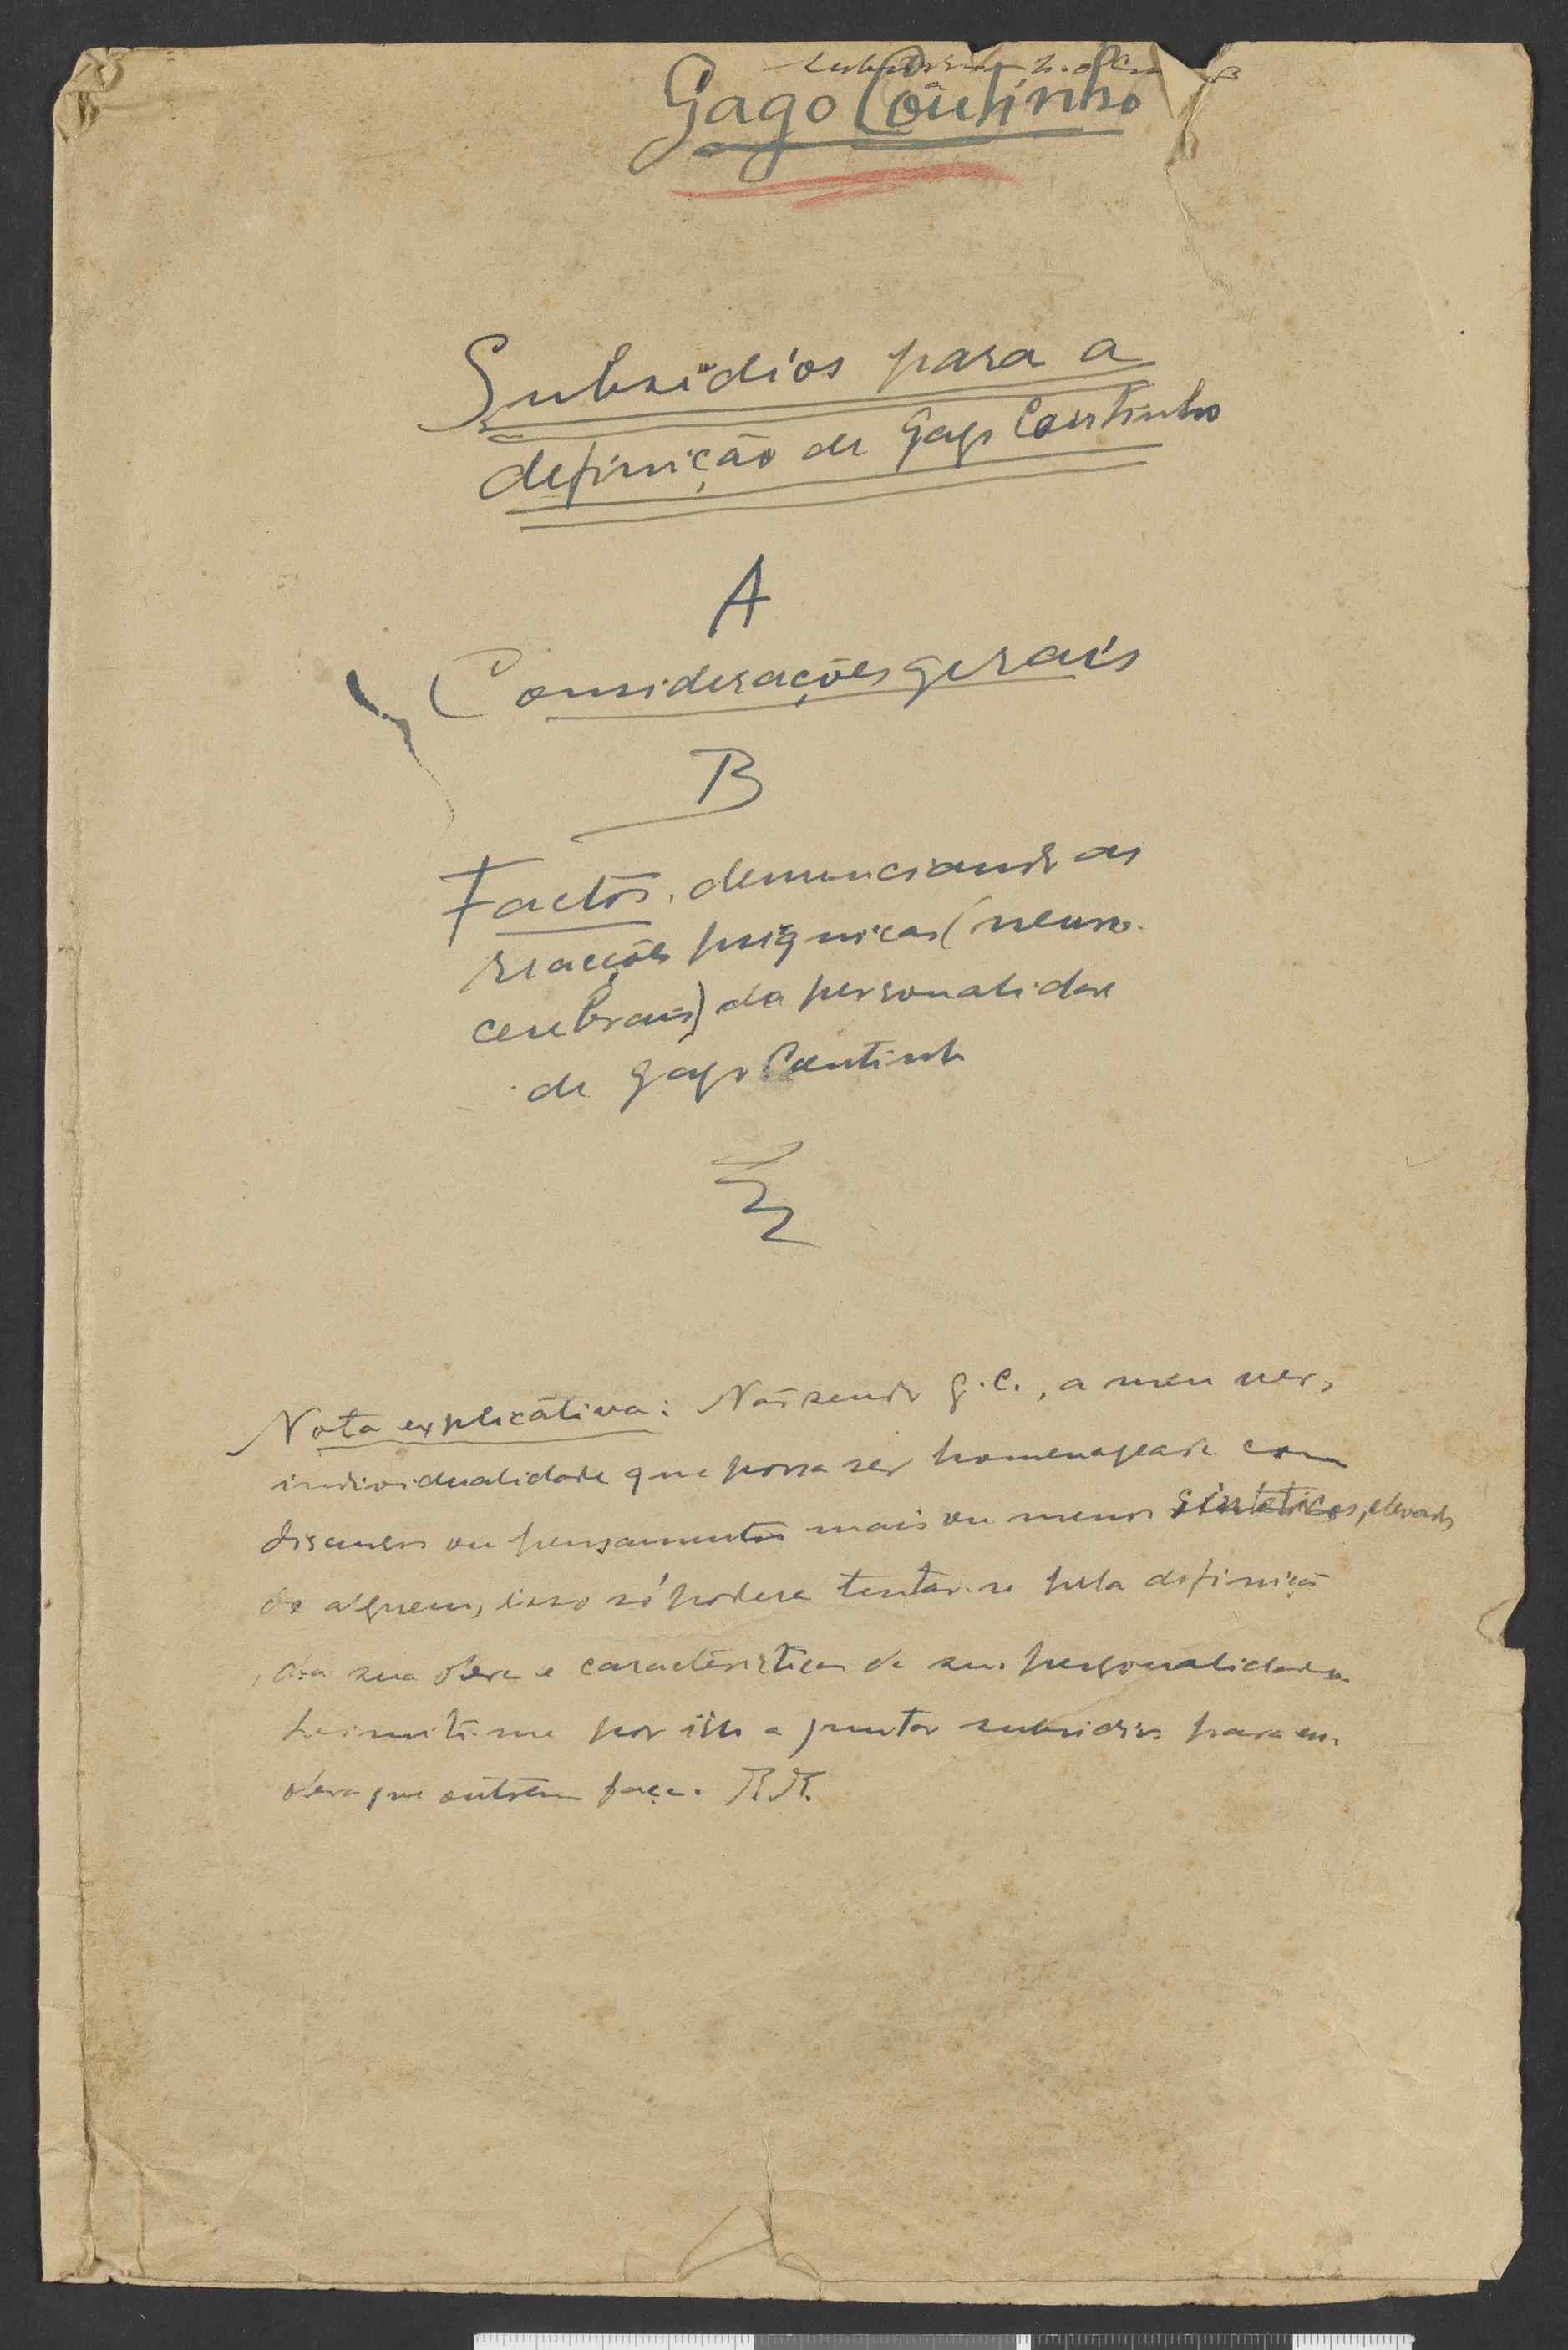 Gago Coutinho
Subsidios para a
definição de Gago Coutinho
A
Considerações gerais
B
Factos, denunciando as
reacções psiquicas (neuro-
cerebrais) da personalidade
de Gago Coutinho
Nota explicativa: Não sendo G.C., a meu ver,
individualidade que possa ser homenageada com
discursos ou pensamentos mais ou menos sinteticos, elevados
de alguem, isso só poderá tentar-se pela definição
da sua obra e caracteristicas da sua personalidade.
Limito-me por isso a juntar subsidios para essa
obra que outrem faça.